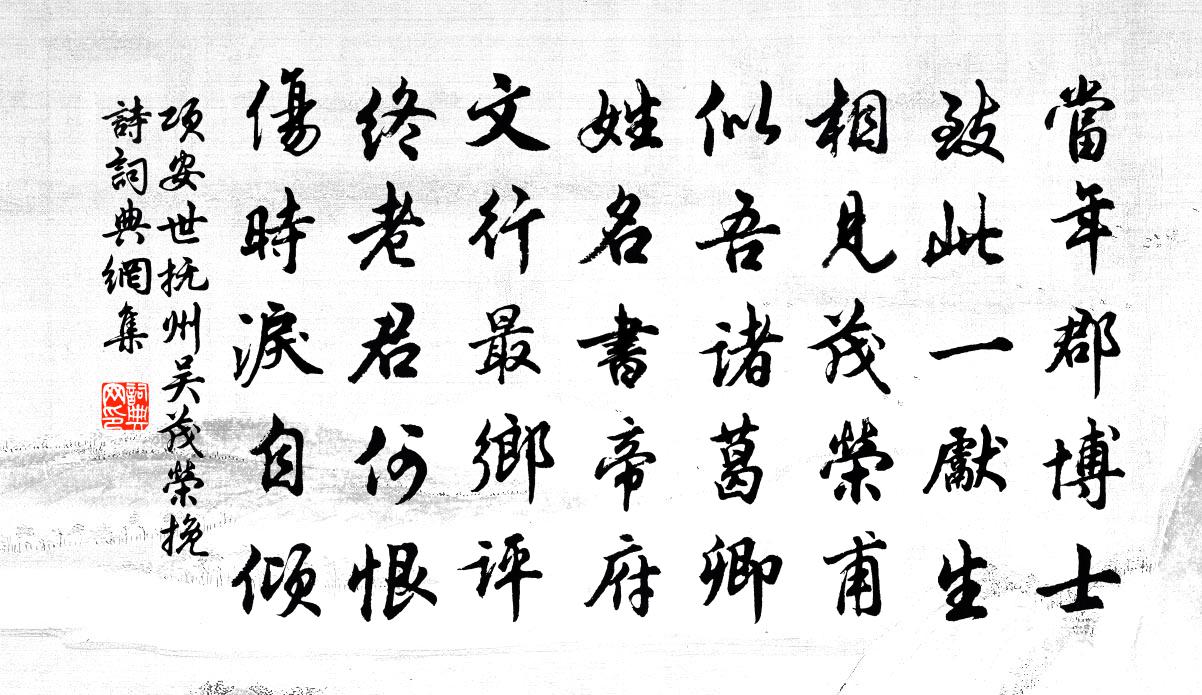 當年郡博士
致此一獻生
相見茂榮甫
似吾諸葛卿
姓名書帝府
文行最鄉評
終老君何恨
傷時淚自傾
項安世撫州吴茂榮挽
詩詞典網集
詞典網印